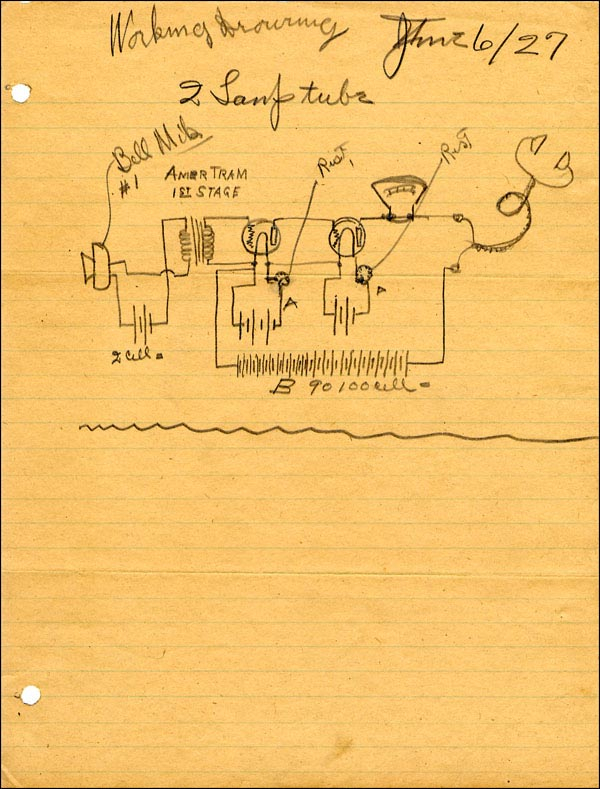 Working Drawing June 6/27
2 Lamp tube
Bell Mike
#1
AMERTRAM
1ST STAGE
Rest,
Rest
A
A
2 Cell =
B 90 100 cell =